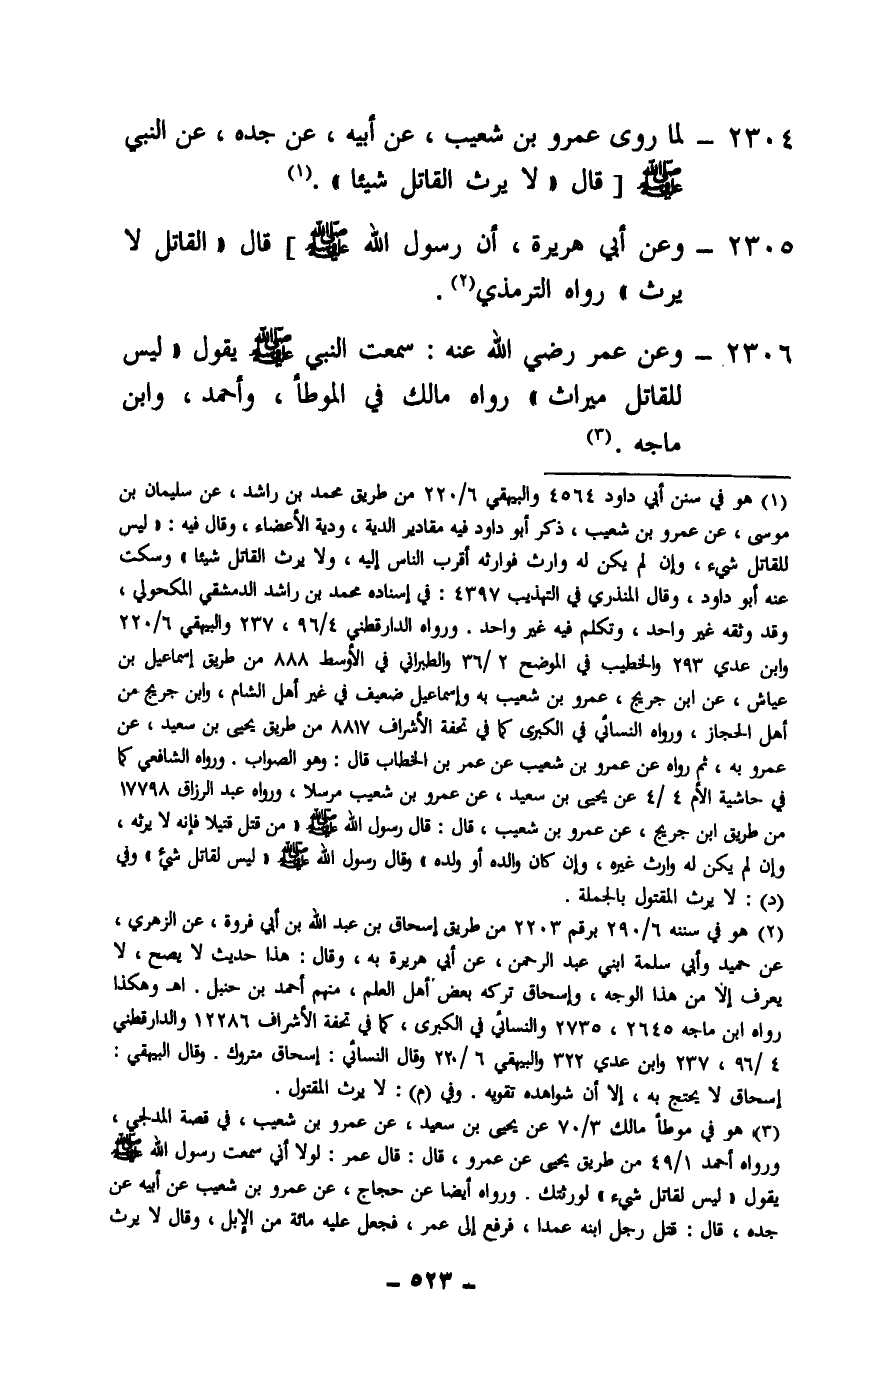 ٢٣٠٤ – لما روى عمرو بن شعيب ، عن أبيه ، عن جده ، عن النبي
ﷺ [ قال « لا يرث القاتل شيئا » .(١)
٢٣٠٥ – وعن أبي هريرة ، أن رسول الله ﷺ ] قال « القاتل لا
يرث » رواه الترمذي(٢) .
٢٣٠٦ – وعن عمر رضي الله عنه : سمعت النبي ﷺ يقول « ليس
للقاتل ميراث » رواه مالك في الموطأ ، وأحمد ، وابن
ماجه .(٣)
(١) هو في سنن أبي داود ٤٥٦٤ والبيهقي ٢٢٠/٦ من طريق محمد بن راشد ، عن سليمان بن
موسى ، عن عمرو بن شعيب ، ذكر أبو داود فيه مقادير الدية ، ودية الأعضاء ، وقال فيه : « ليس
للقاتل شيء ، وإن لم يكن له وارث فوارثه أقرب الناس إليه ، ولا يرث القاتل شيئا » وسكت
عنه أبو داود ، وقال المنذري في التهذيب ٤٣٩٧ : في إسناده محمد بن راشد الدمشقي المكحولي ،
وقد وثقه غير واحد ، وتكلم فيه غير واحد . ورواه الدارقطني ٩٦/٤ ، ٢٣٧ والبيهقي ٢٢٠/٦
وابن عدي ٢٩٣ والخطيب في الموضح ٢ /٣٦ والطبراني في الأوسط ٨٨٨ من طريق إسماعيل بن
عياش ، عن ابن جريج ، عمرو بن شعيب به وإسماعيل ضعيف في غير أهل الشام ، وابن جريج من
أهل الحجاز ، ورواه النسائي في الكبرى كما في تحفة الأشراف ٨٨١٧ من طريق يحيى بن سعيد ، عن
عمرو به ، ثم رواه عن عمرو بن شعيب عن عمر بن الخطاب قال : وهو الصواب . ورواه الشافعي كما
في حاشية الأم ٤ /٤ عن يحيى بن سعيد ، عن عمرو بن شعيب مرسلا ، ورواه عبد الرزاق ١٧٧٩٨
من طريق ابن جريج ، عن عمرو بن شعيب ، قال : قال رسول الله ﷺ « من قتل قتيلا فإنه لا يرثه ،
وإن لم يكن له وارث غيره ، وإن كان والده أو ولده » وقال رسول الله ﷺ « ليس لقاتل شئ » وفي
(د) : لا يرث المقتول بالجملة .
(٢) هو في سننه ٢٩٠/٦ برقم ٢٢٠٣ من طريق إسحاق بن عبد الله بن أبي فروة ، عن الزهري ،
عن حميد وأبي سلمة ابني عبد الرحمن ، عن أبي هريرة به ، وقال : هذا حديث لا يصح ، لا
يعرف إلّا من هذا الوجه ، وإسحاق تركه بعض أهل العلم ، منهم أحمد بن حنبل . اهـ وهكذا
رواه ابن ماجه ٢٦٤٥ ، ٢٧٣٥ والنسائي في الكبرى ، كما في تحفة الأشراف ١٢٢٨٦ والدارقطني
٤ /٩٦ ، ٢٣٧ وابن عدي ٣٢٢ والبيهقي ٦ /٢٢٠ وقال النسائي : إسحاق متروك . وقال البيهقي :
إسحاق لا يحتج به ، إلا أن شواهده تقويه . وفي (م) : لا يرث المقتول .
(٣) هو في موطأ مالك ٧٠/٣ عن يحيى بن سعيد ، عن عمرو بن شعيب ، في قصة المدلجي ،
ورواه أحمد ٤٩/١ من طريق يحيى عن عمرو ، قال : قال عمر : لولا أني سمعت رسول الله ﷺ
يقول « ليس لقاتل شيء » لورثتك . ورواه أيضا عن حجاج ، عن عمرو بن شعيب عن أبيه عن
جده ، قال : قتل رجل ابنه عمدا ، فرفع إلى عمر ، فجعل عليه مائة من الإبل ، وقال لا يرث
– ٥٢٣ –